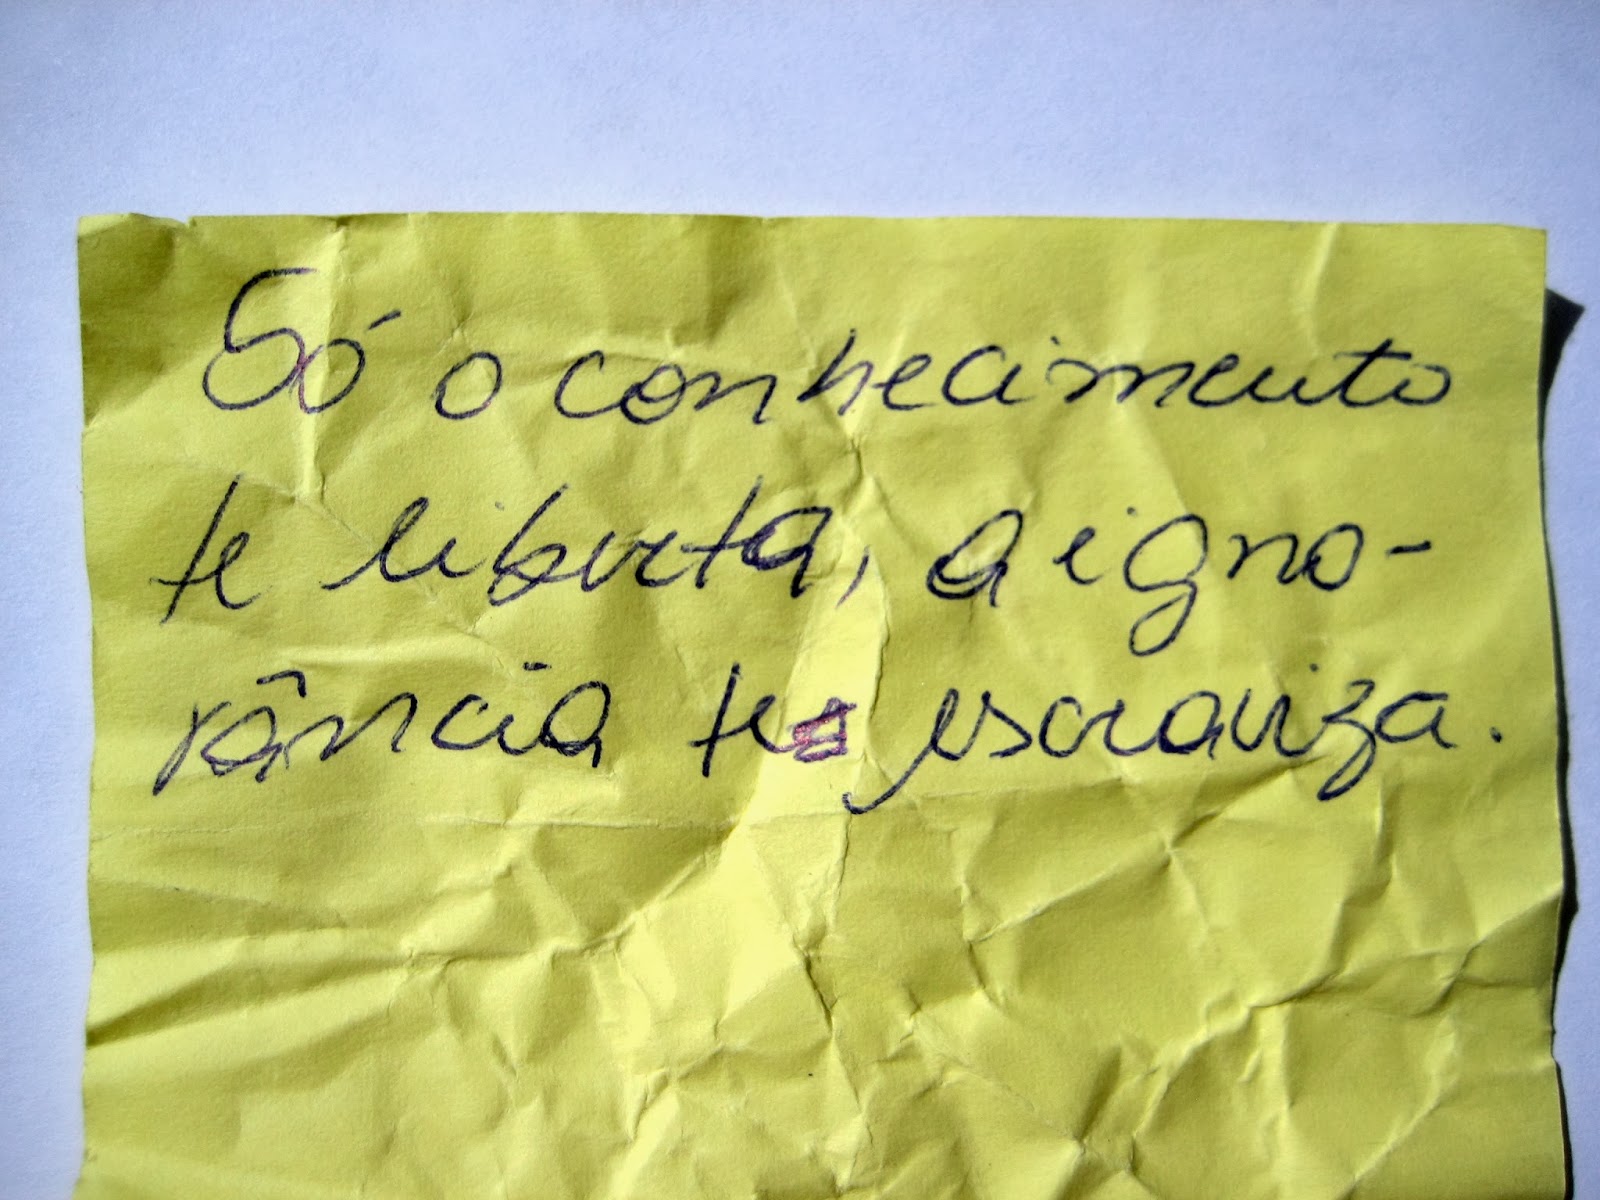 Só o conhecimento
te liberta, a igno-
rância te escraviza.